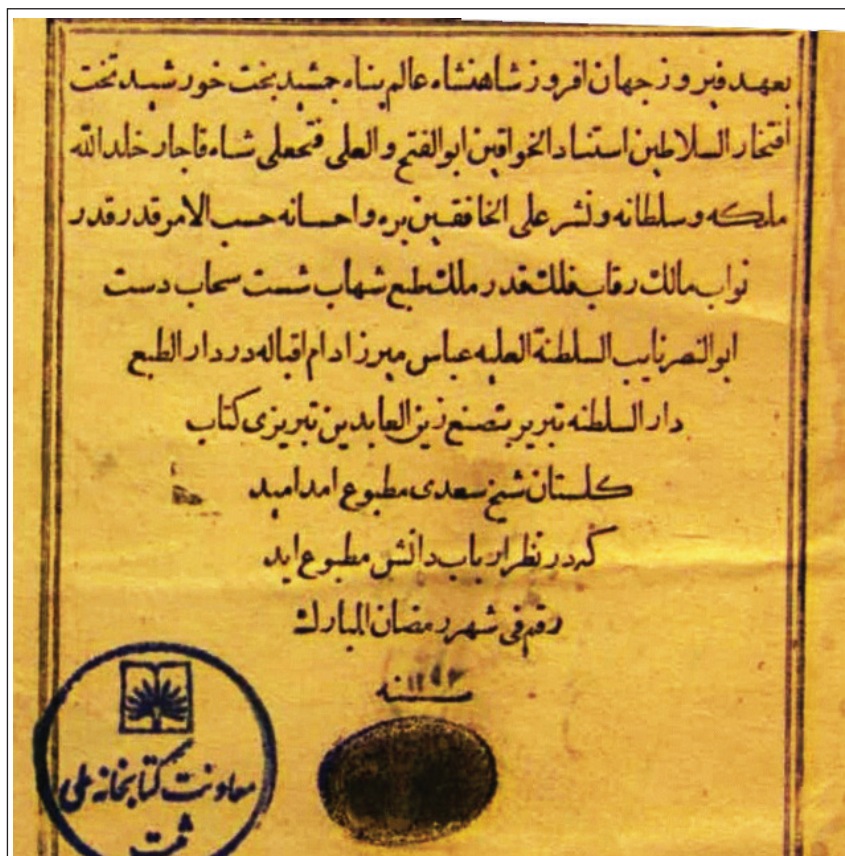 بعهد فیروز جهان افروز شاهنشاه عالم پناه جمشید بخت خورشید تخت
افتخار السلاطین استناد الخواقین ابوالفتح والعلی فتحعلی شاه قاجار خلد الله
ملکه وسلطانه ونشر علی الخافقین بره واحسانه حسب الامر قدر قدر
نواب مالک رقاب فلک قدر ملک طبع شهاب شست سحاب دست
ابوالنصر نایب السلطنة العلیه عباس میرزا دام اقباله در دار الطبع
دار السلطنه تبریز بتصنع زین العابدین تبریزی کتاب
کلستان شیخ سعدی مطبوع امد امید
که در نظر ارباب دانش مطبوع اید
رقم فی شهر رمضان المبارک
سنه
معاونت کتابخانه ملی
ثبت